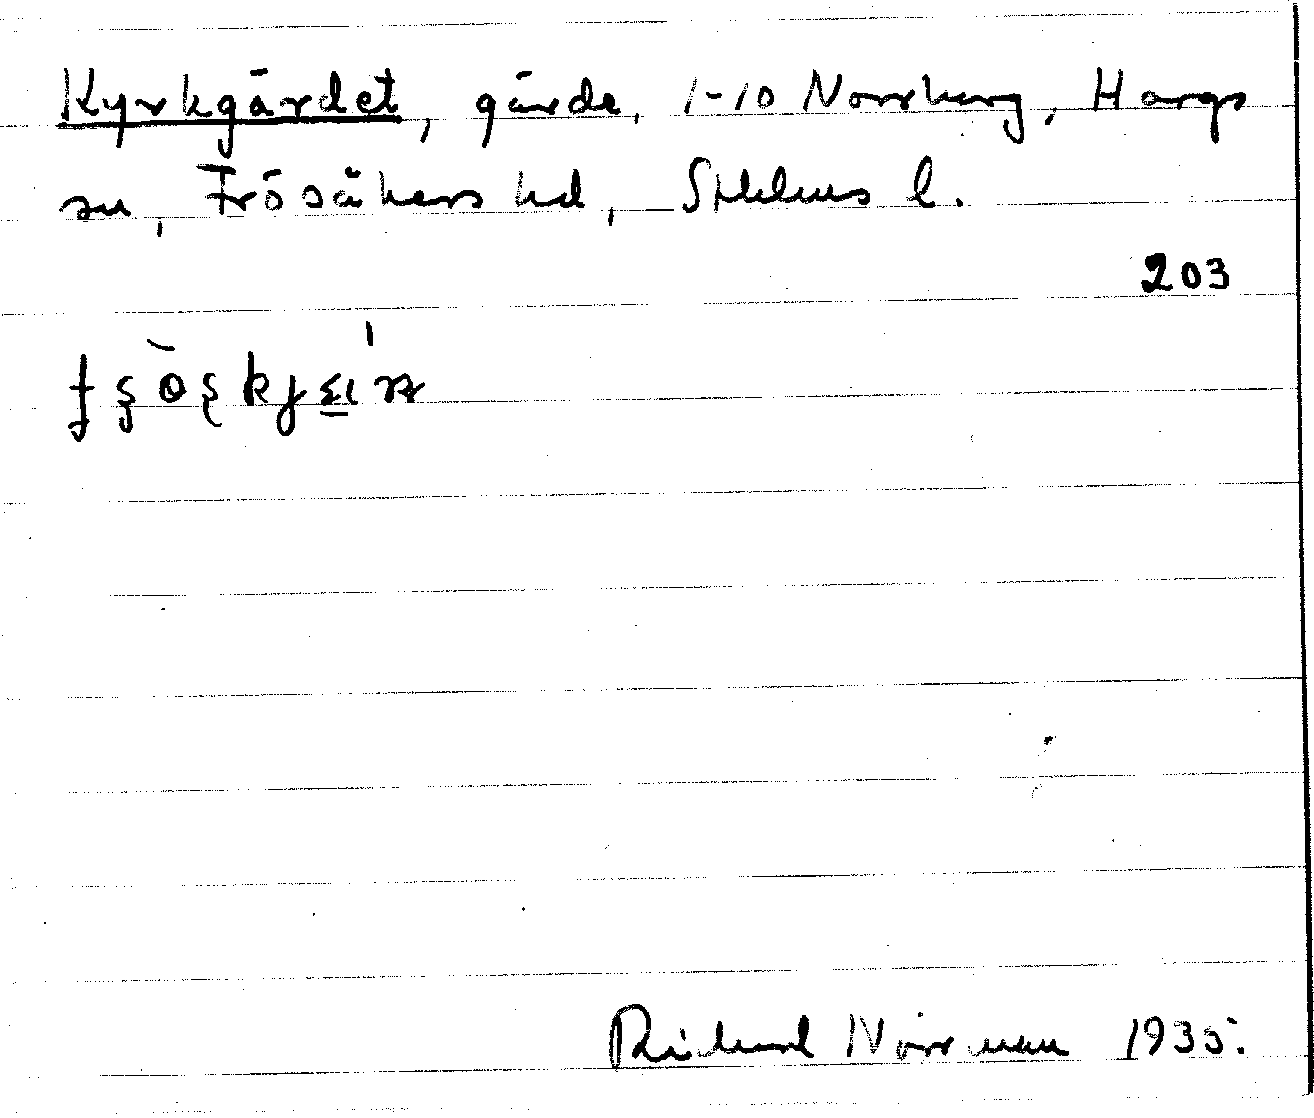 Kyrkgärdet, gärde, 1-10 Norrberg, Hargs
sn, Frösåkers hd, Sthlms l.
203
Richard Norrman 1935.